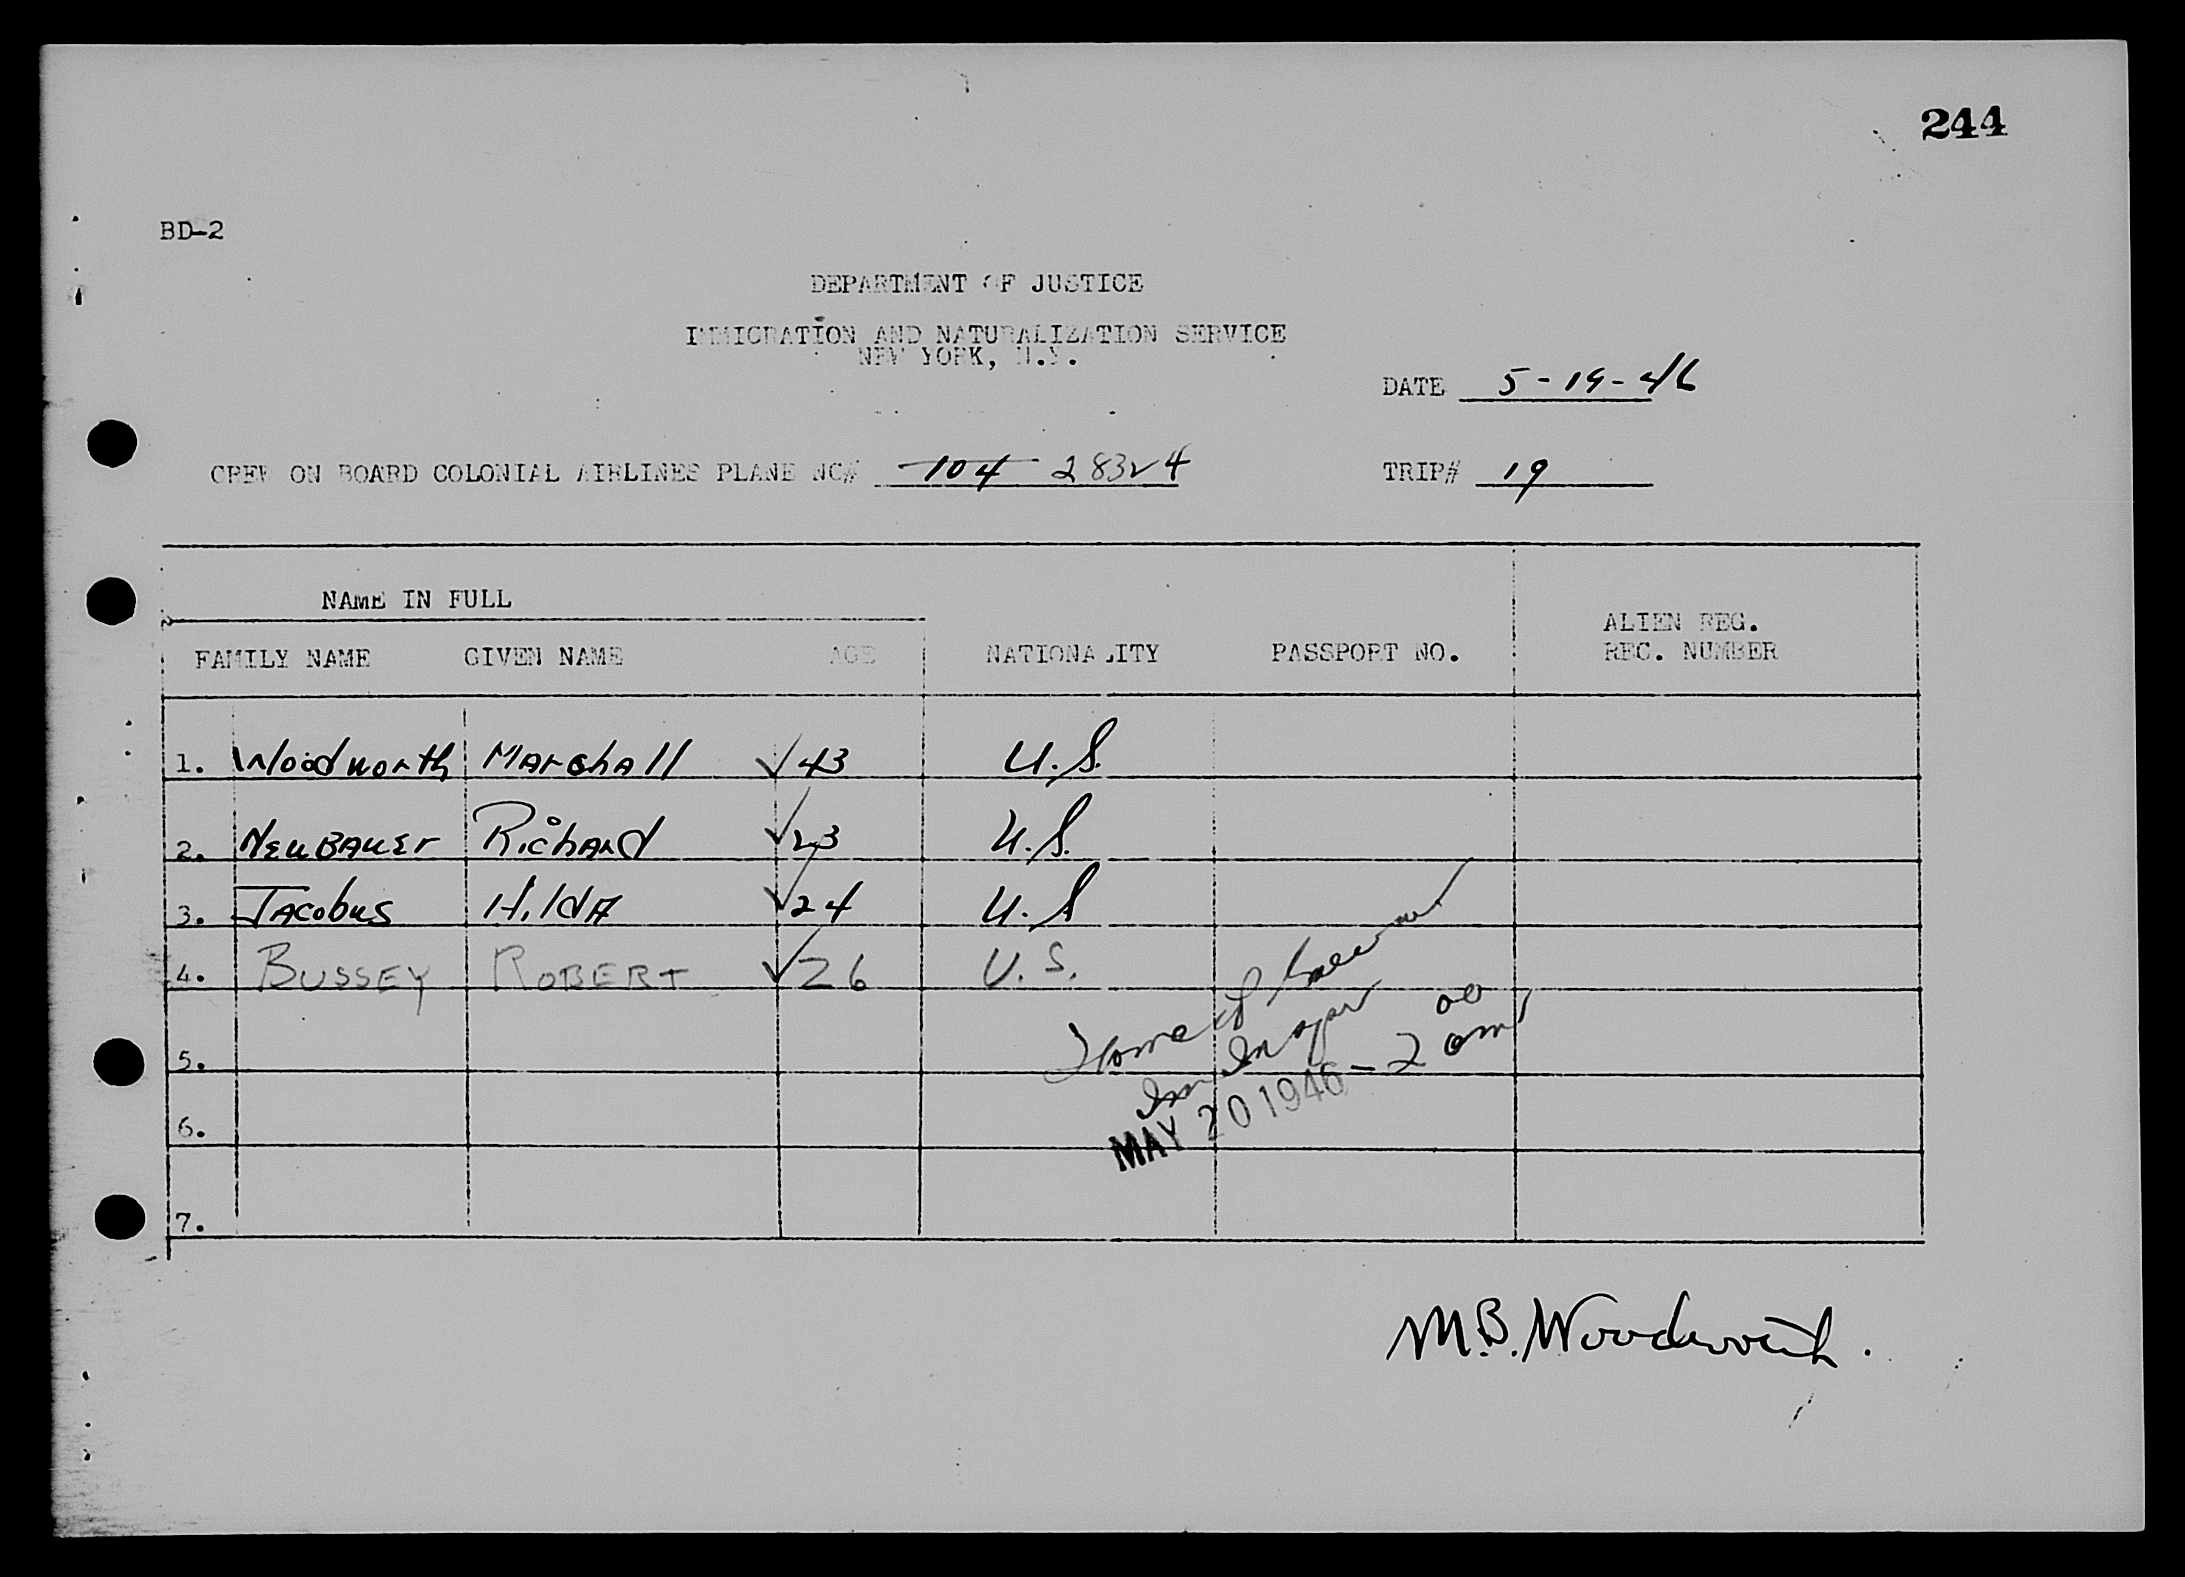 244
BD-2
DEPARTMENT OF JUSTICE
IMMIGRATION AND NATURALIZATION SERVICE
NEW YORK, N.Y.
DATE 5-19-46
CREW ON BOARD COLONIAL AIRLINES PLANE NC# 104 28324
TRIP# 19
NAME IN FULL
FAMILY NAME GIVEN NAME AGE NATIONALITY PASSPORT NO. ALIEN REG. REC. NUMBER
1. Woodworth Marshall √ 43 U.S.
2. Neubauer Richard √ 23 U.S.
3. Jacobus Hilda √ 24 U.S
4. BUSSEY ROBERT √ 26 U.S.
5.
6.
7.
Imm Inspr
MAY 20 1946 - 2 00 am
M.B. Woodworth.